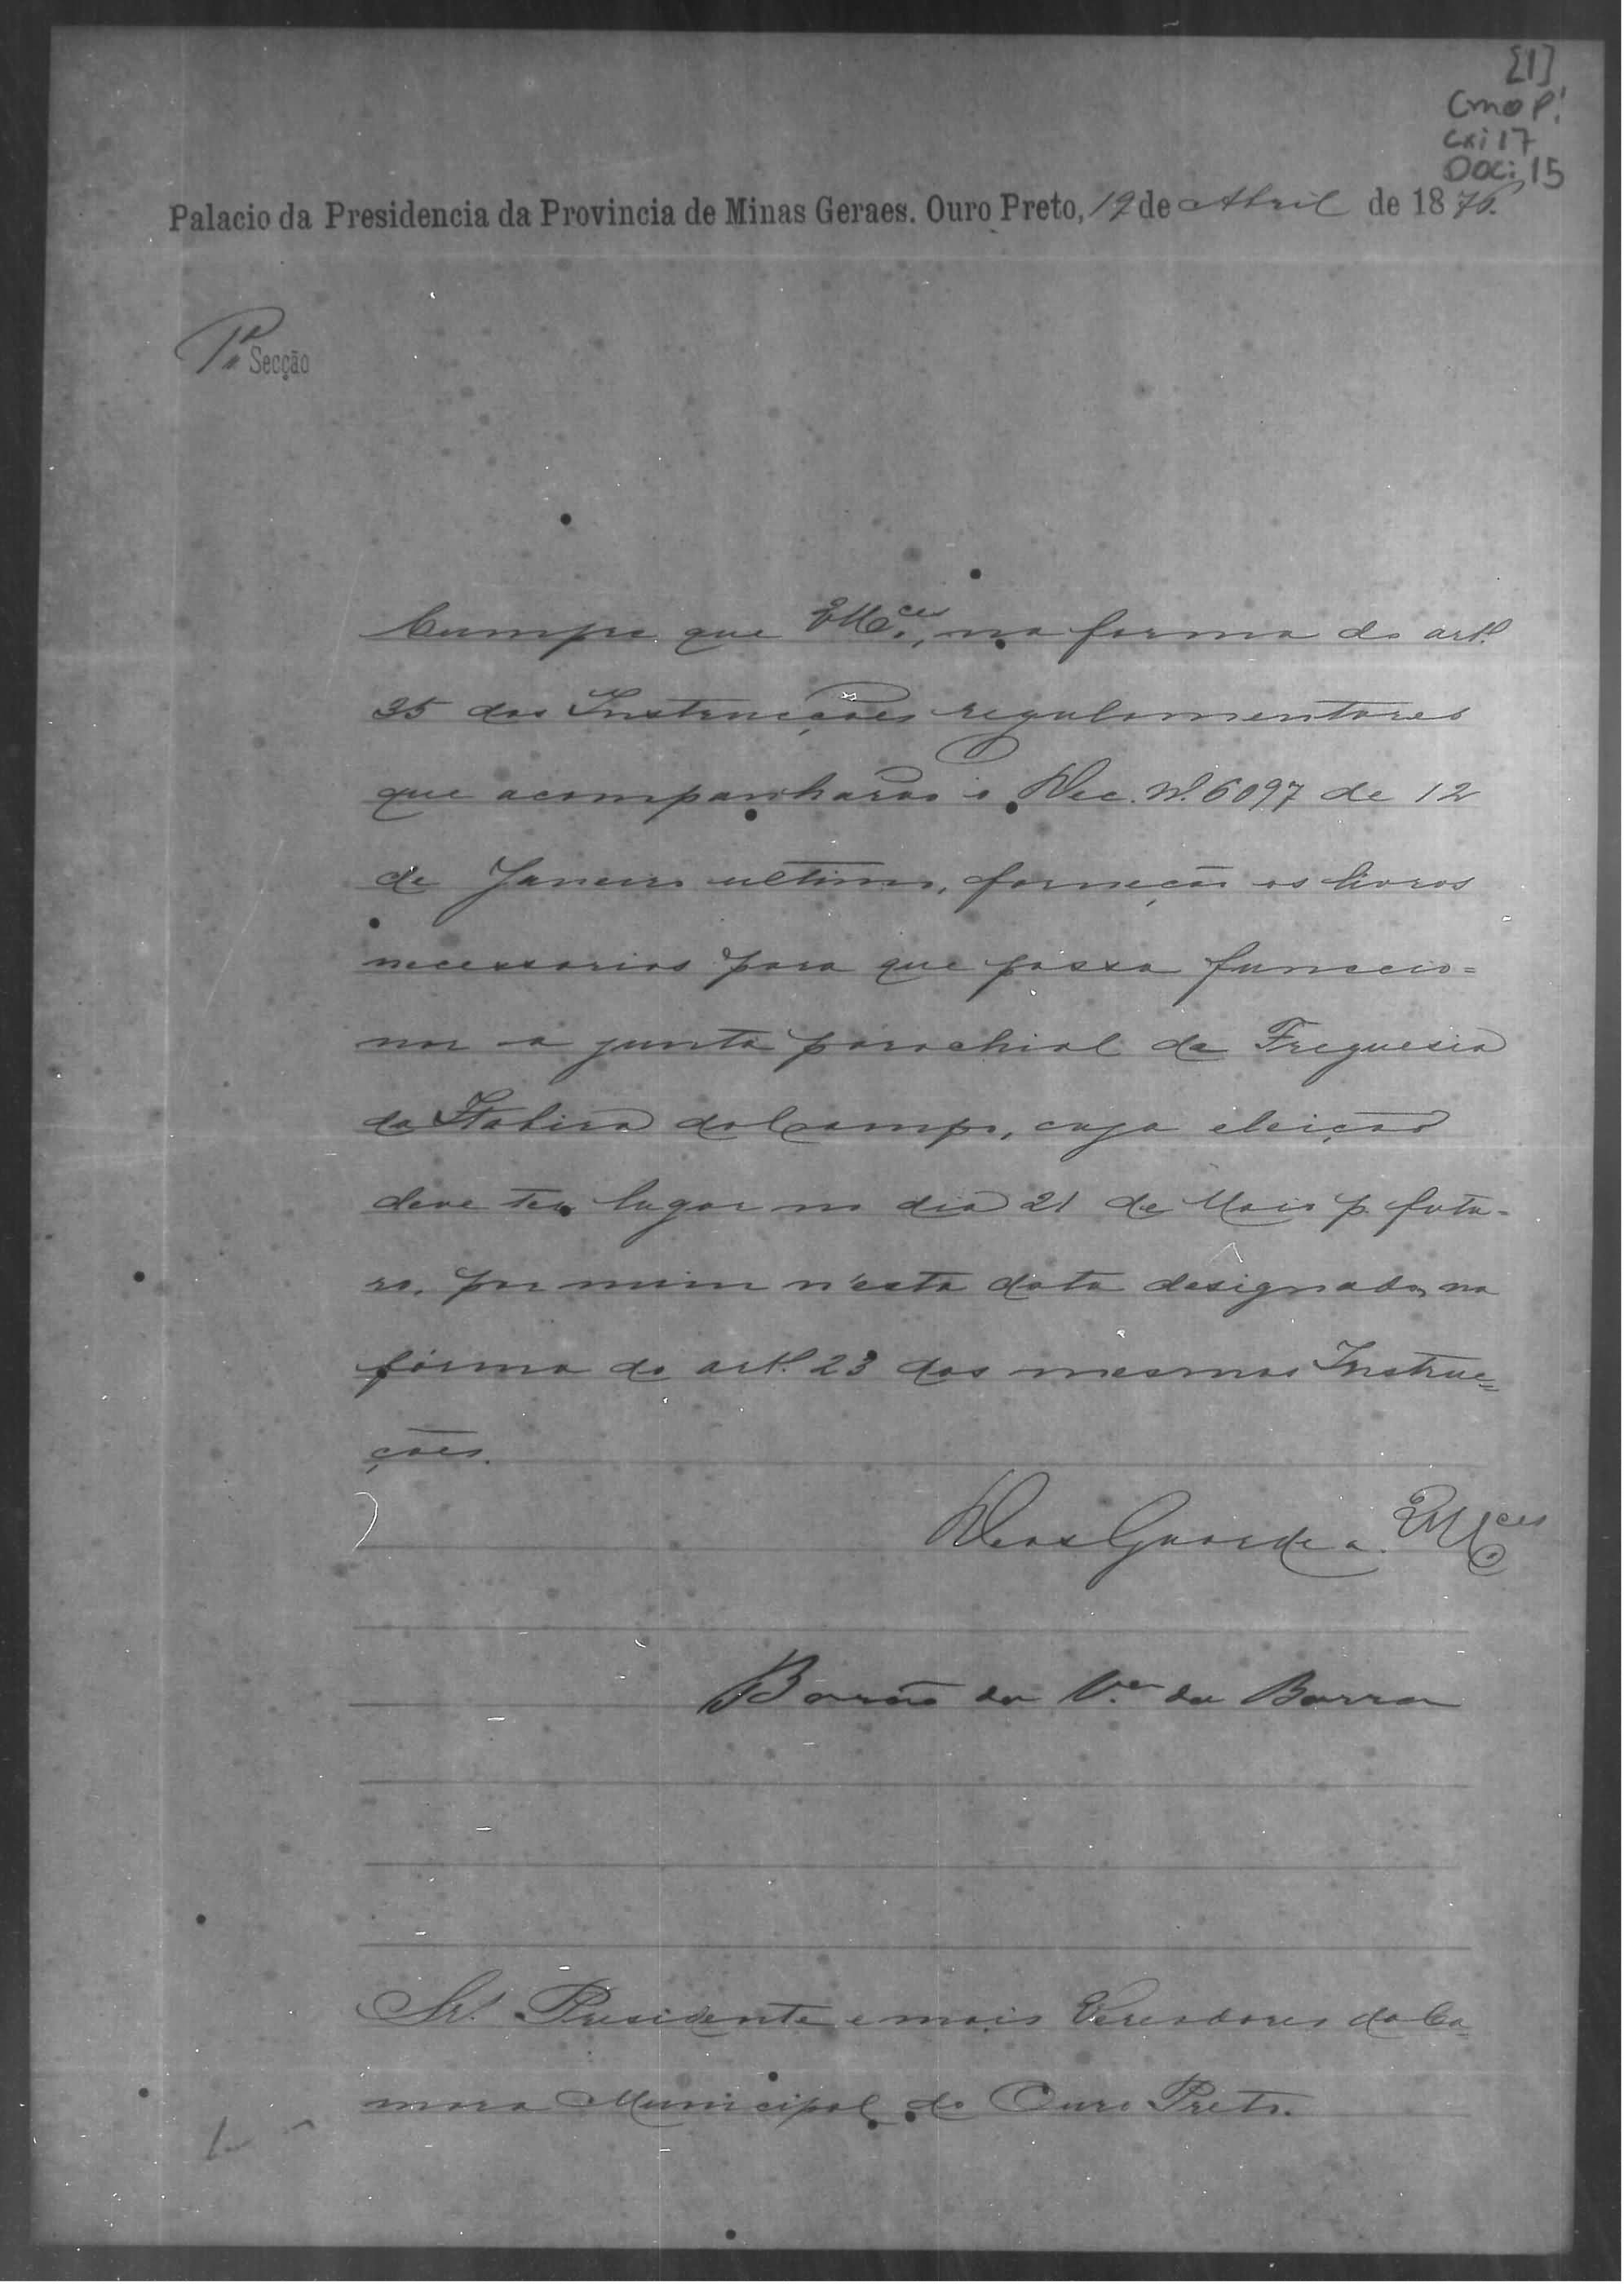 [1]
CMOP!
cx: 17
DOC: 15
Palacio da Presidencia da Provincia de Minas Geraes. Ouro Preto, 19 de Abril de 1876.
1ª Secção
Cumpre que VMces., na forma do artº
25 das Instrucções regulamentares
que acompanharão o Dec. Nº 6097 de 12
de Janeiro ultimo, forneção os livros
necessarios para que possa funccio=
nar a junta parochial da Freguesia
da Itabira do Campo, cuja eleição
deve ter lugar no dia 21 de Maio p. futu-
ro, por mim n'esta data designado, na
fórma do artº 23 das mesmas Instruc=
ções.
Deos Guarde a VMces
Barão da Va. da Barra
Sr. Presidente e mais Vereadores da Ca=
mara Municipal do Ouro Preto.